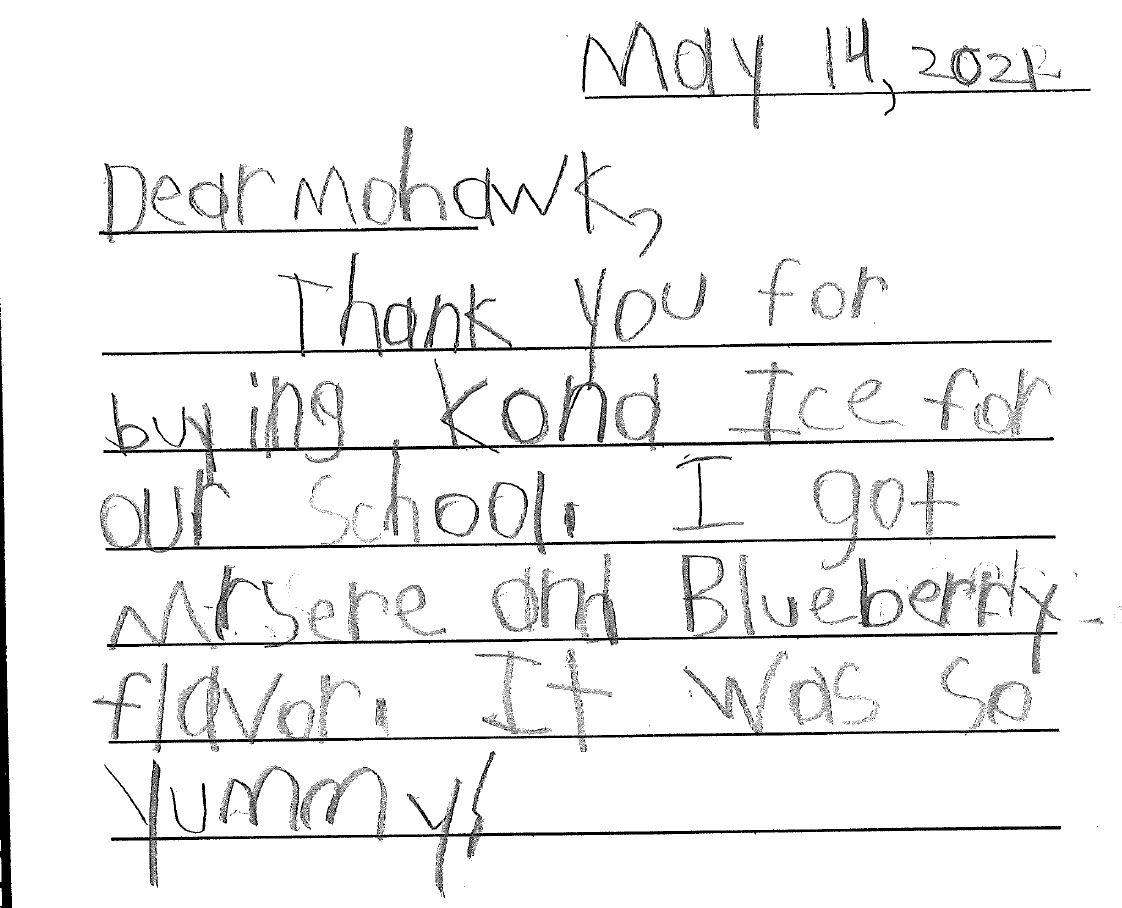 May 14, 2022
Dear Mohawk,
Thank you for
buying Kona Ice for
our school. I got
and Blueberry
flavor. It was so
Yummy!